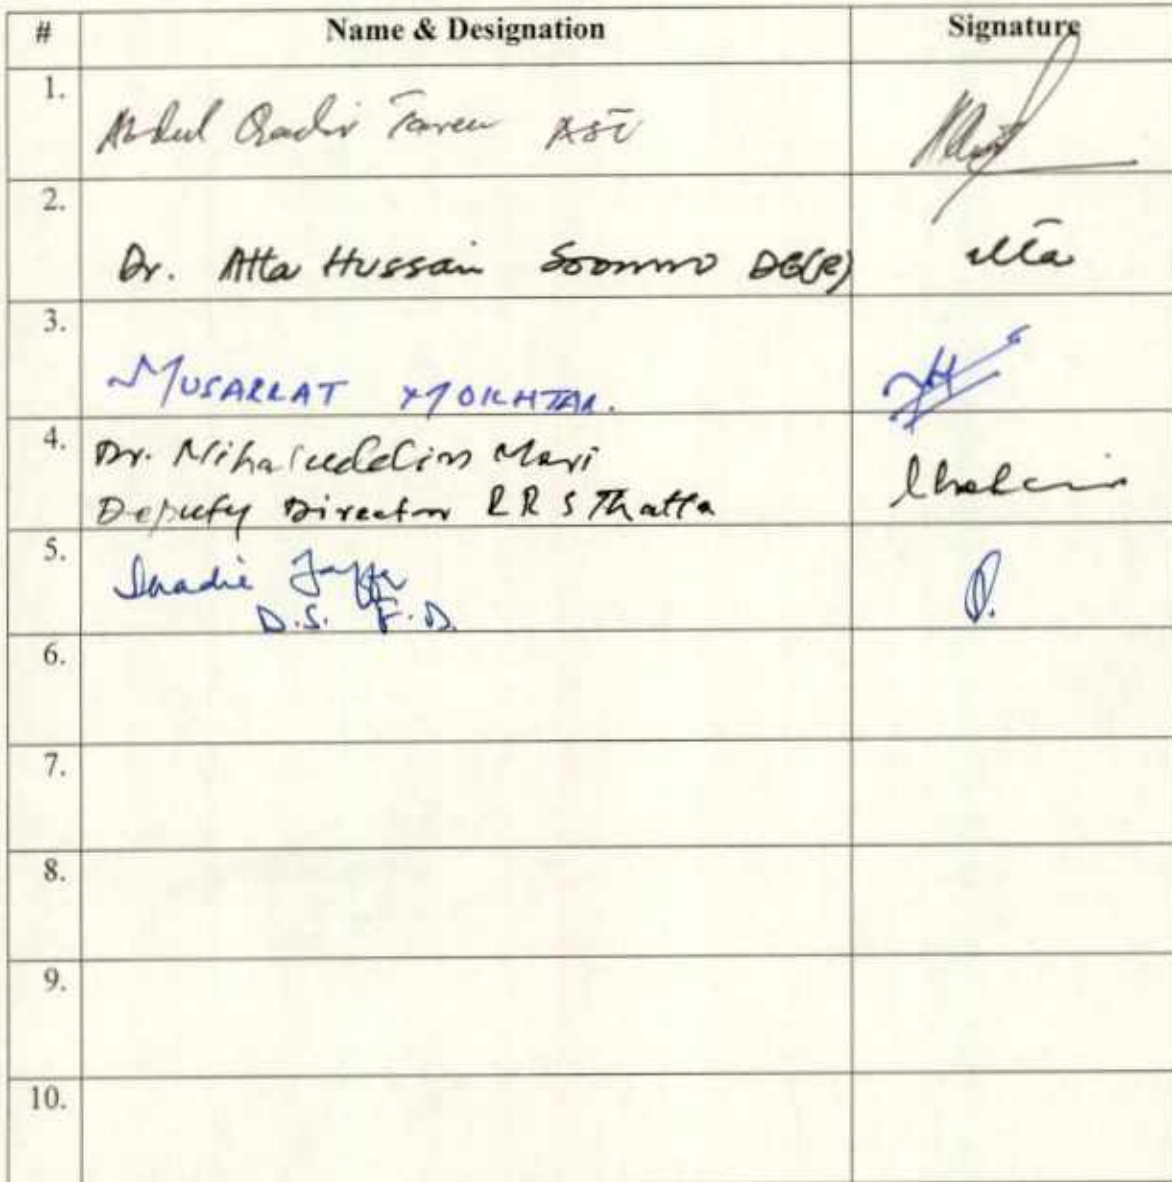 # Name & Designation Signature
1. Abdul Qadir Tareen
2. Dr. Atta Hussain Soomro DG(R) Atta
3. MUSARRAT MOKHTAR.
4. Dr. Nihaluddin Mari
Deputy Director RRS Thatta
5.
D.S. F.D.
6.
7.
8.
9.
10.